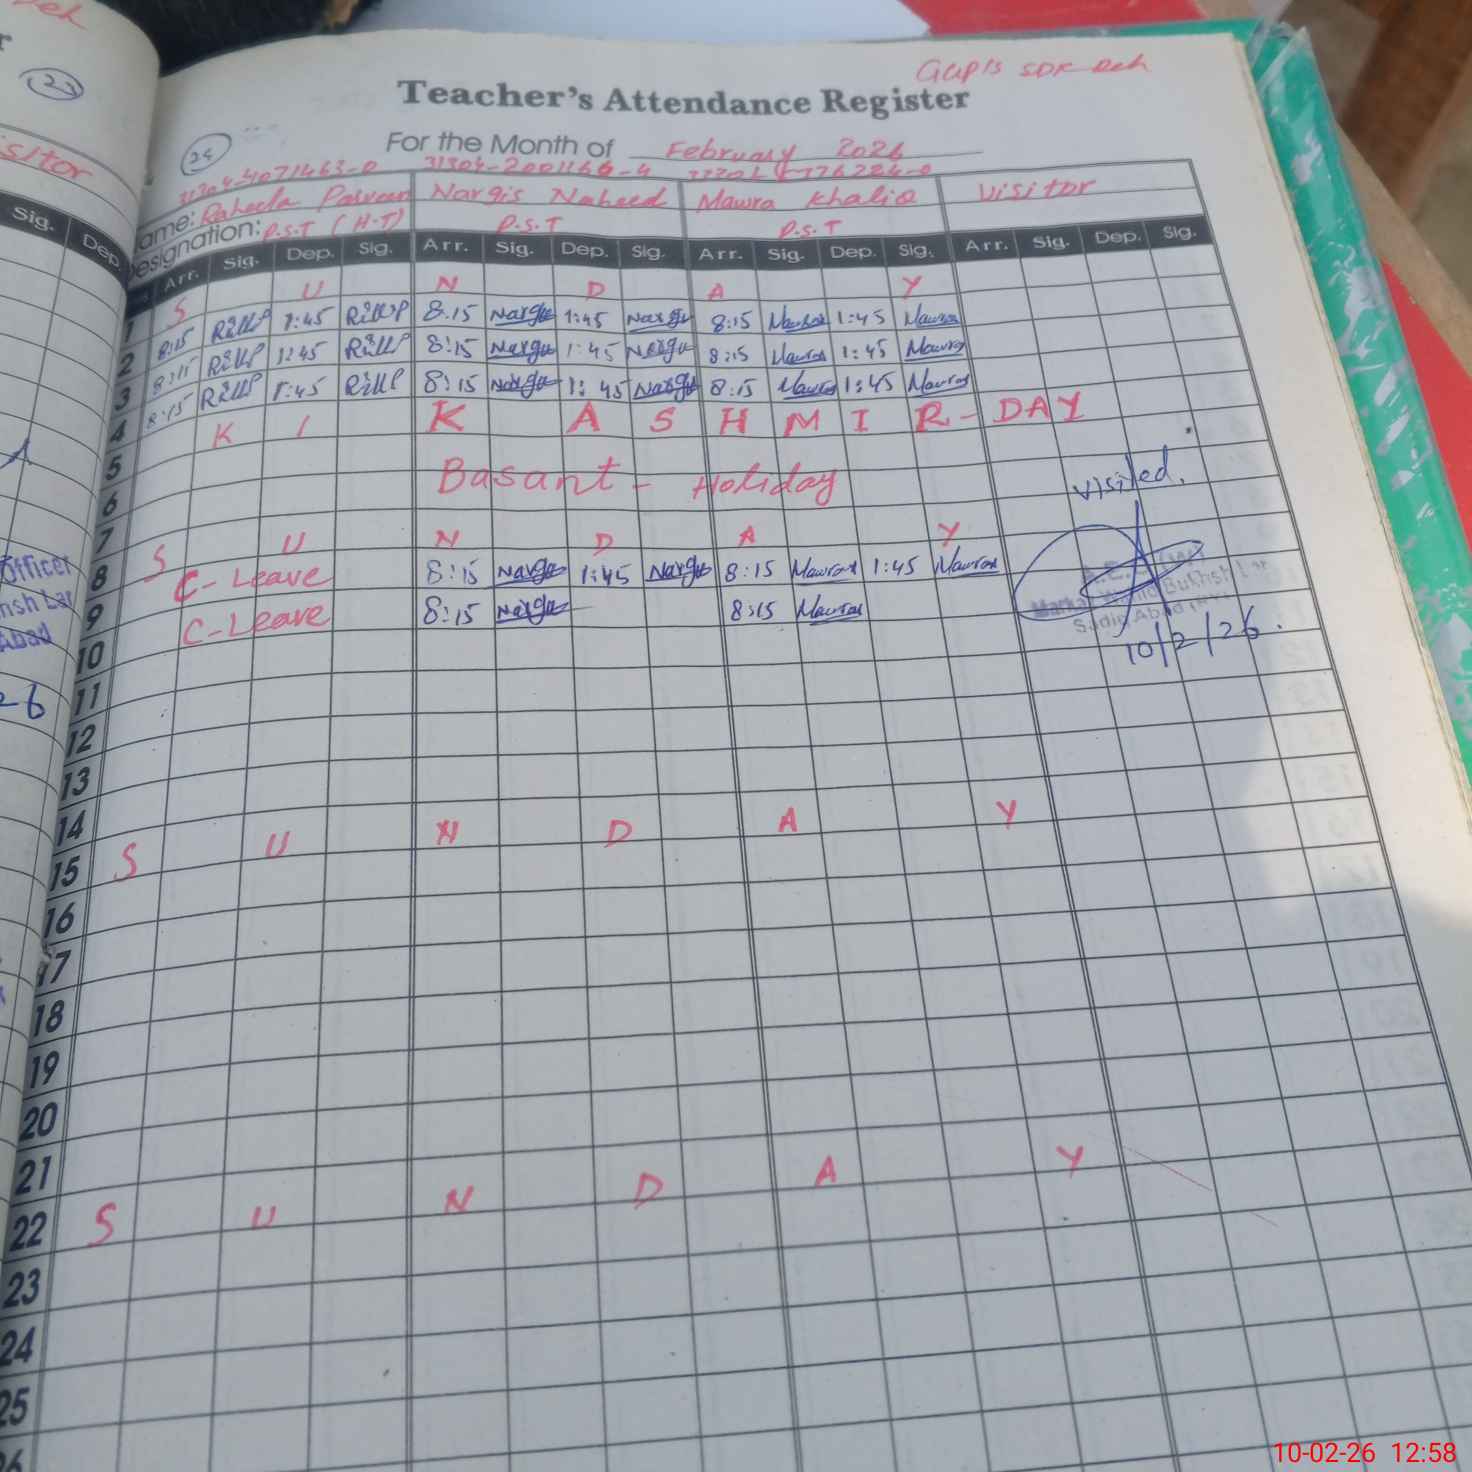 GGP/S SDK Deh
Teacher's Attendance Register
24
For the Month of February 2026
31304-4071463-0 31304-2001166-4
Name: Raheela Parveen Nargis Naheed Mawra Khaliq Visitor
Designation: P.S.T (H-T) P.S.T P.S.T
Arr. Sig. Dep. Sig. Arr. Sig. Dep. Sig. Arr. Sig. Dep. Sig. Arr. Sig. Dep. Sig.
1 S U N D A Y
2 8:15 1:45 8:15 Nargis 1:45 Nargis 8:15 Mawra 1:45 Mawra
3 8:15 1:45 8:15 Nargis 1:45 Nargis 8:15 Mawra 1:45 Mawra
4 8:15 1:45 8:15 Nargis 1:45 Nargis 8:15 Mawra 1:45 Mawra
5 K A S H M I R - DAY
6 Basant - Holiday
7
8 S U N D A Y
9 C-Leave 8:15 Nargis 1:45 Nargis 8:15 Mawra 1:45 Mawra
10 C-Leave 8:15 Nargis 8:15 Mawra
visited.
10/2/26.
11
12
13
14
15 S U N D A Y
16
17
18
19
20
21
22 S U N D A Y
23
24
25
26
23
sitor
Sig. Dep.
Officer
Abad
10-02-26 12:58